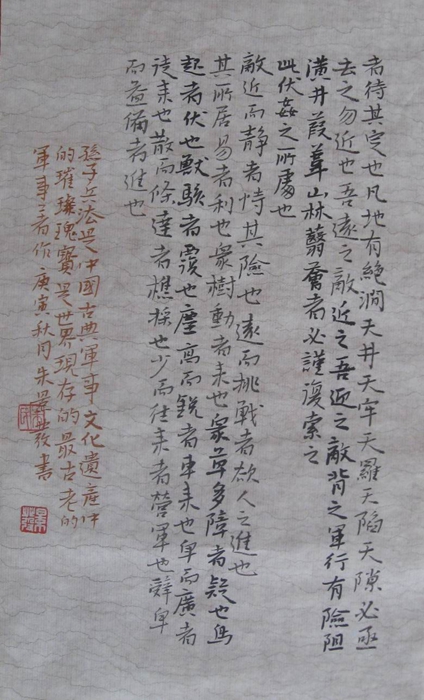 者待其定也凡地有絶澗天井天牢天羅天陷天隙必亟
去之勿近也吾遠之敵近之吾迎之敵背之軍行有險阻
潢井葭葦山林蘙薈者必謹復索之
此伏姦之所處也
敵近而靜者恃其險也遠而挑戰者欲人之進也
其所居易者利也衆樹動者来也衆草多障者疑也鳥
起者伏也獸駭者覆也塵高而銳者車来也卑而廣者
徒来也散而條達者樵採也少而往来者營軍也辭卑
而益備者進也
孫子兵法是中國古典軍事文化遺產中
的璀璨瑰寶是世界現存的最古老的
軍事著作庚寅秋月朱書